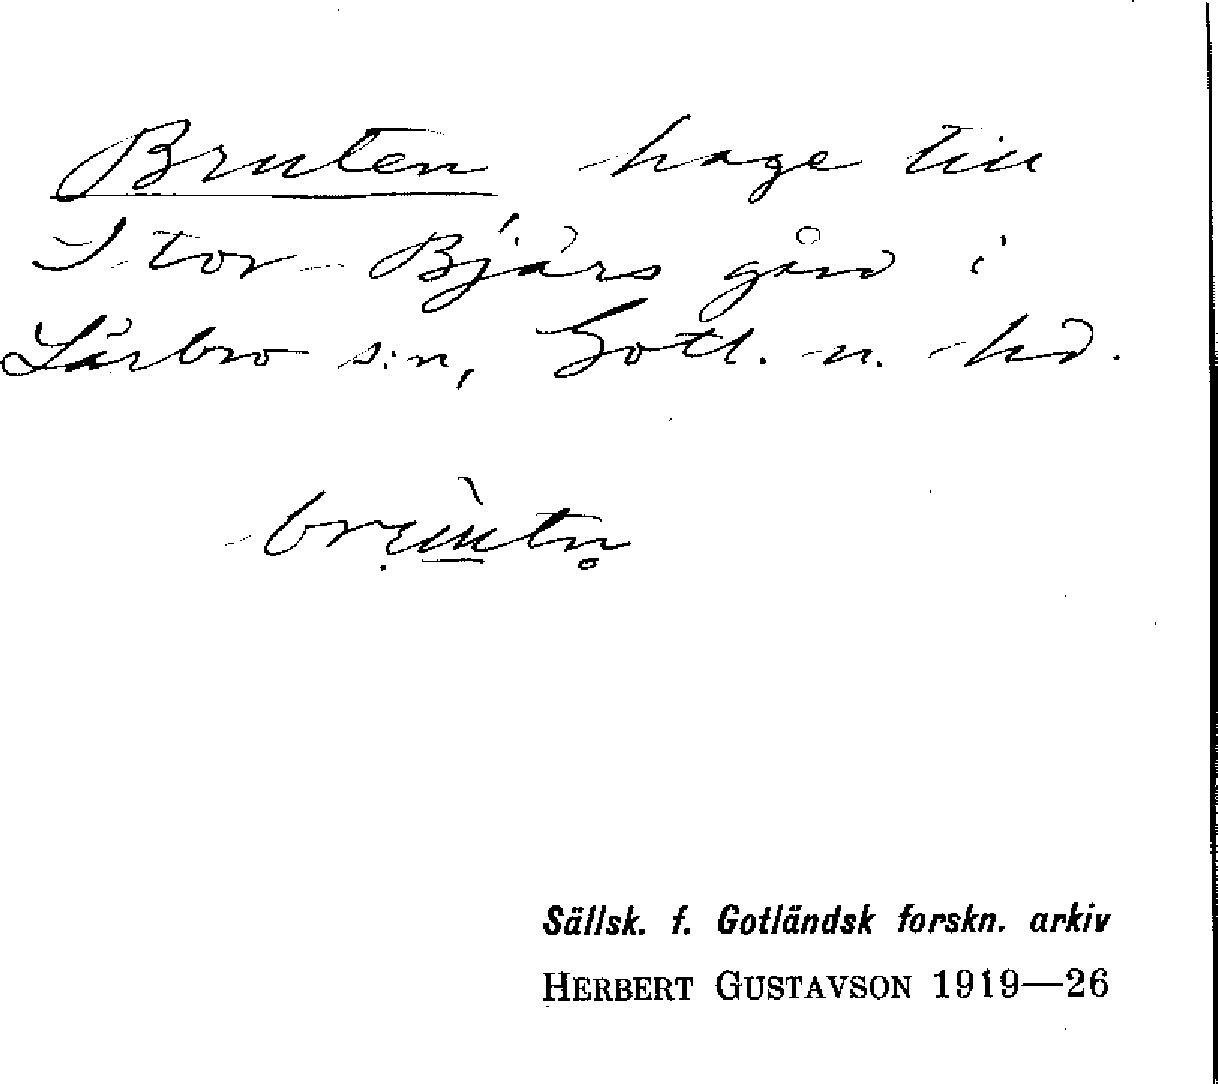 Bruten hage till
Stor-Bjärs gård i
Lärbro s:n, Gotl. n. hd.
Sällsk. f. Gotländsk forskn. arkiv
HERBERT GUSTAVSON 1919—26